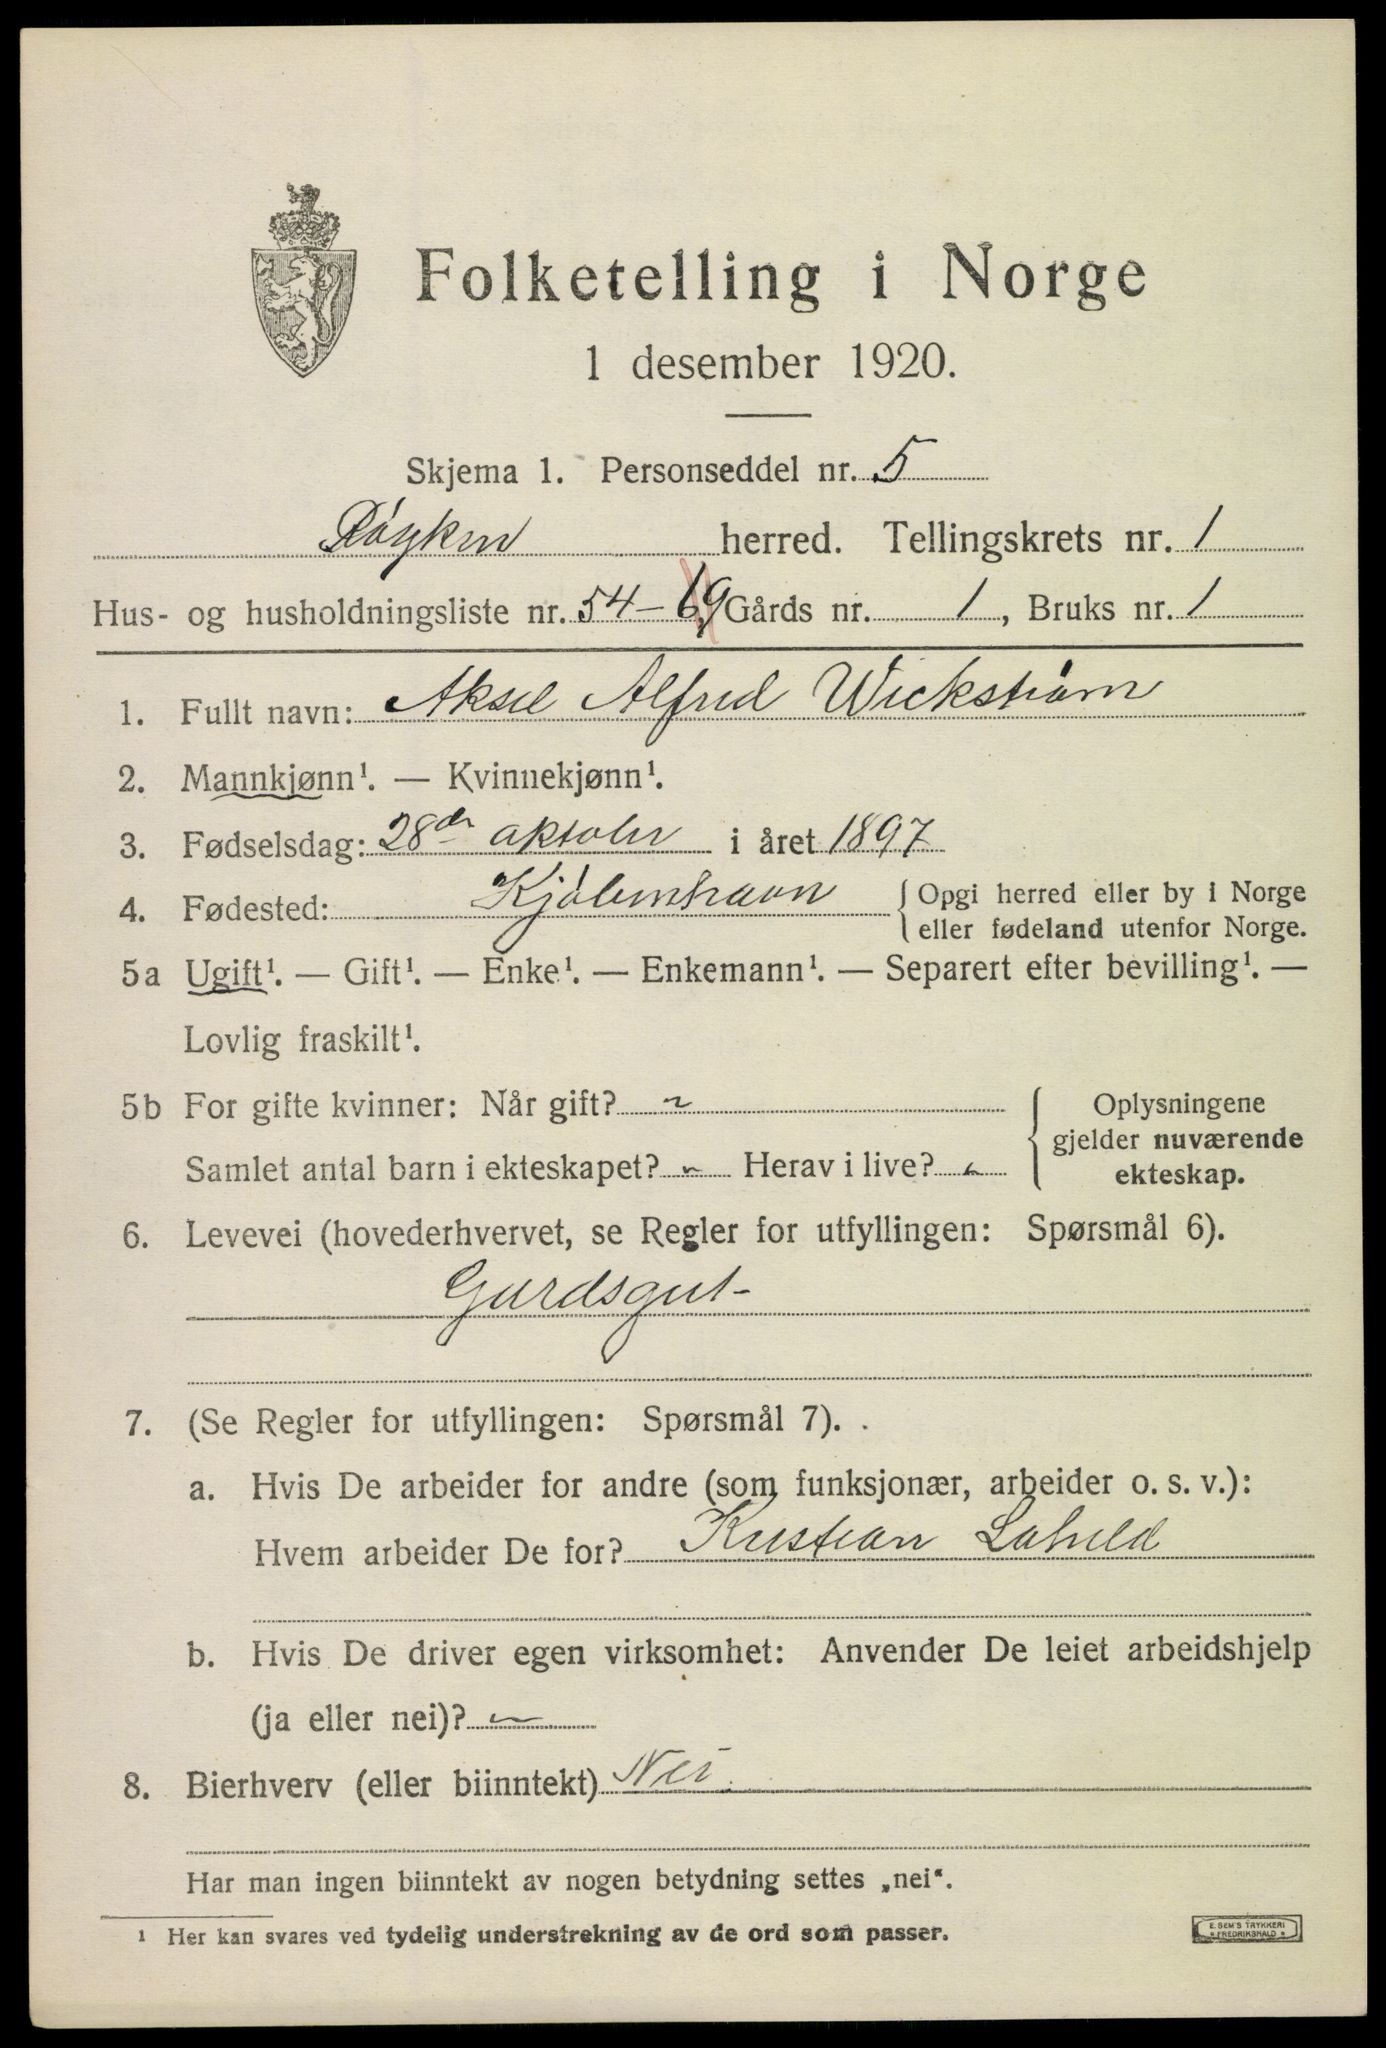 Folketelling i Norge
1 desember 1920.
Skjema 1. Personseddel nr. 5
Røyken herred. Tellingskrets nr. 1
Hus- og husholdningsliste nr. 54-69 Gårds nr. 1, Bruks nr. 1
1. Fullt navn: Aksel Alfred Wickstrøm
2. Mannkjønn¹. — Kvinnekjønn¹.
3. Fødselsdag: 28de oktober i året 1897
4. Fødested: Kjøbenhavn { Opgi herred eller by i Norge
eller fødeland utenfor Norge.
5a Ugift¹. — Gift¹. — Enke¹. — Enkemann¹. — Separert efter bevilling¹. —
Lovlig fraskilt¹.
5b For gifte kvinner: Når gift? "
Samlet antal barn i ekteskapet? " Herav i live? "
Oplysningene
gjelder nuværende
ekteskap.
6. Levevei (hovederhvervet, se Regler for utfyllingen: Spørsmål 6).
Gardsgut
7. (Se Regler for utfyllingen: Spørsmål 7).
a. Hvis De arbeider for andre (som funksjonær, arbeider o. s. v.):
Hvem arbeider De for? Kristian
b. Hvis De driver egen virksomhet: Anvender De leiet arbeidshjelp
(ja eller nei)? "
8. Bierhverv (eller biinntekt) Nei.
Har man ingen biinntekt av nogen betydning settes „nei“.
¹ Her kan svares ved tydelig understrekning av de ord som passer.
E. SEM'S TRYKKERI
* FREDRIKSHALD *